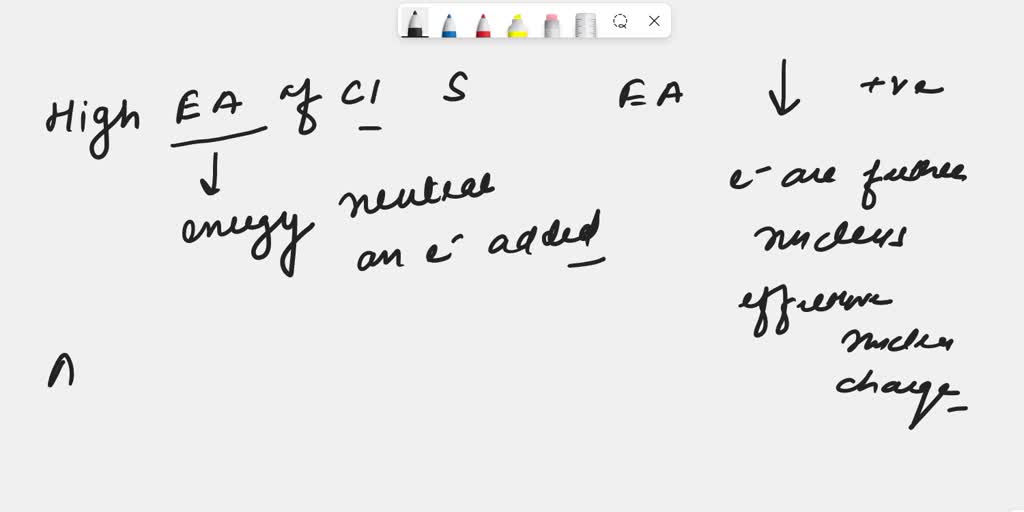 High EA of Cl S EA ↓ +ve
↓
energy neutral
an e⁻ added
e⁻ are further
nucleus
effective
nuclear
charge